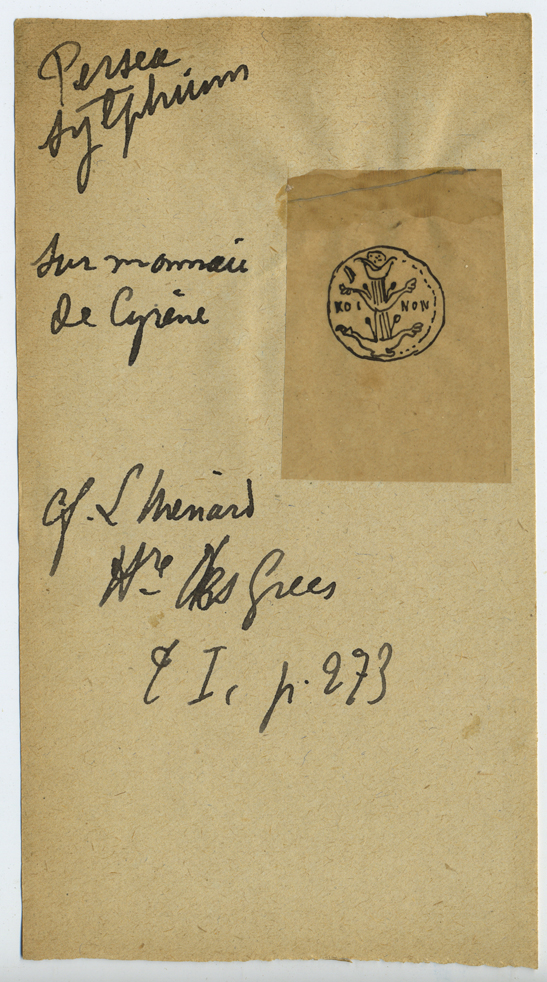 Persea
sylphium
sur monnaie
de Cyrène
KOI NON
cf. L Ménard
Hre des Grecs
t I, p. 273